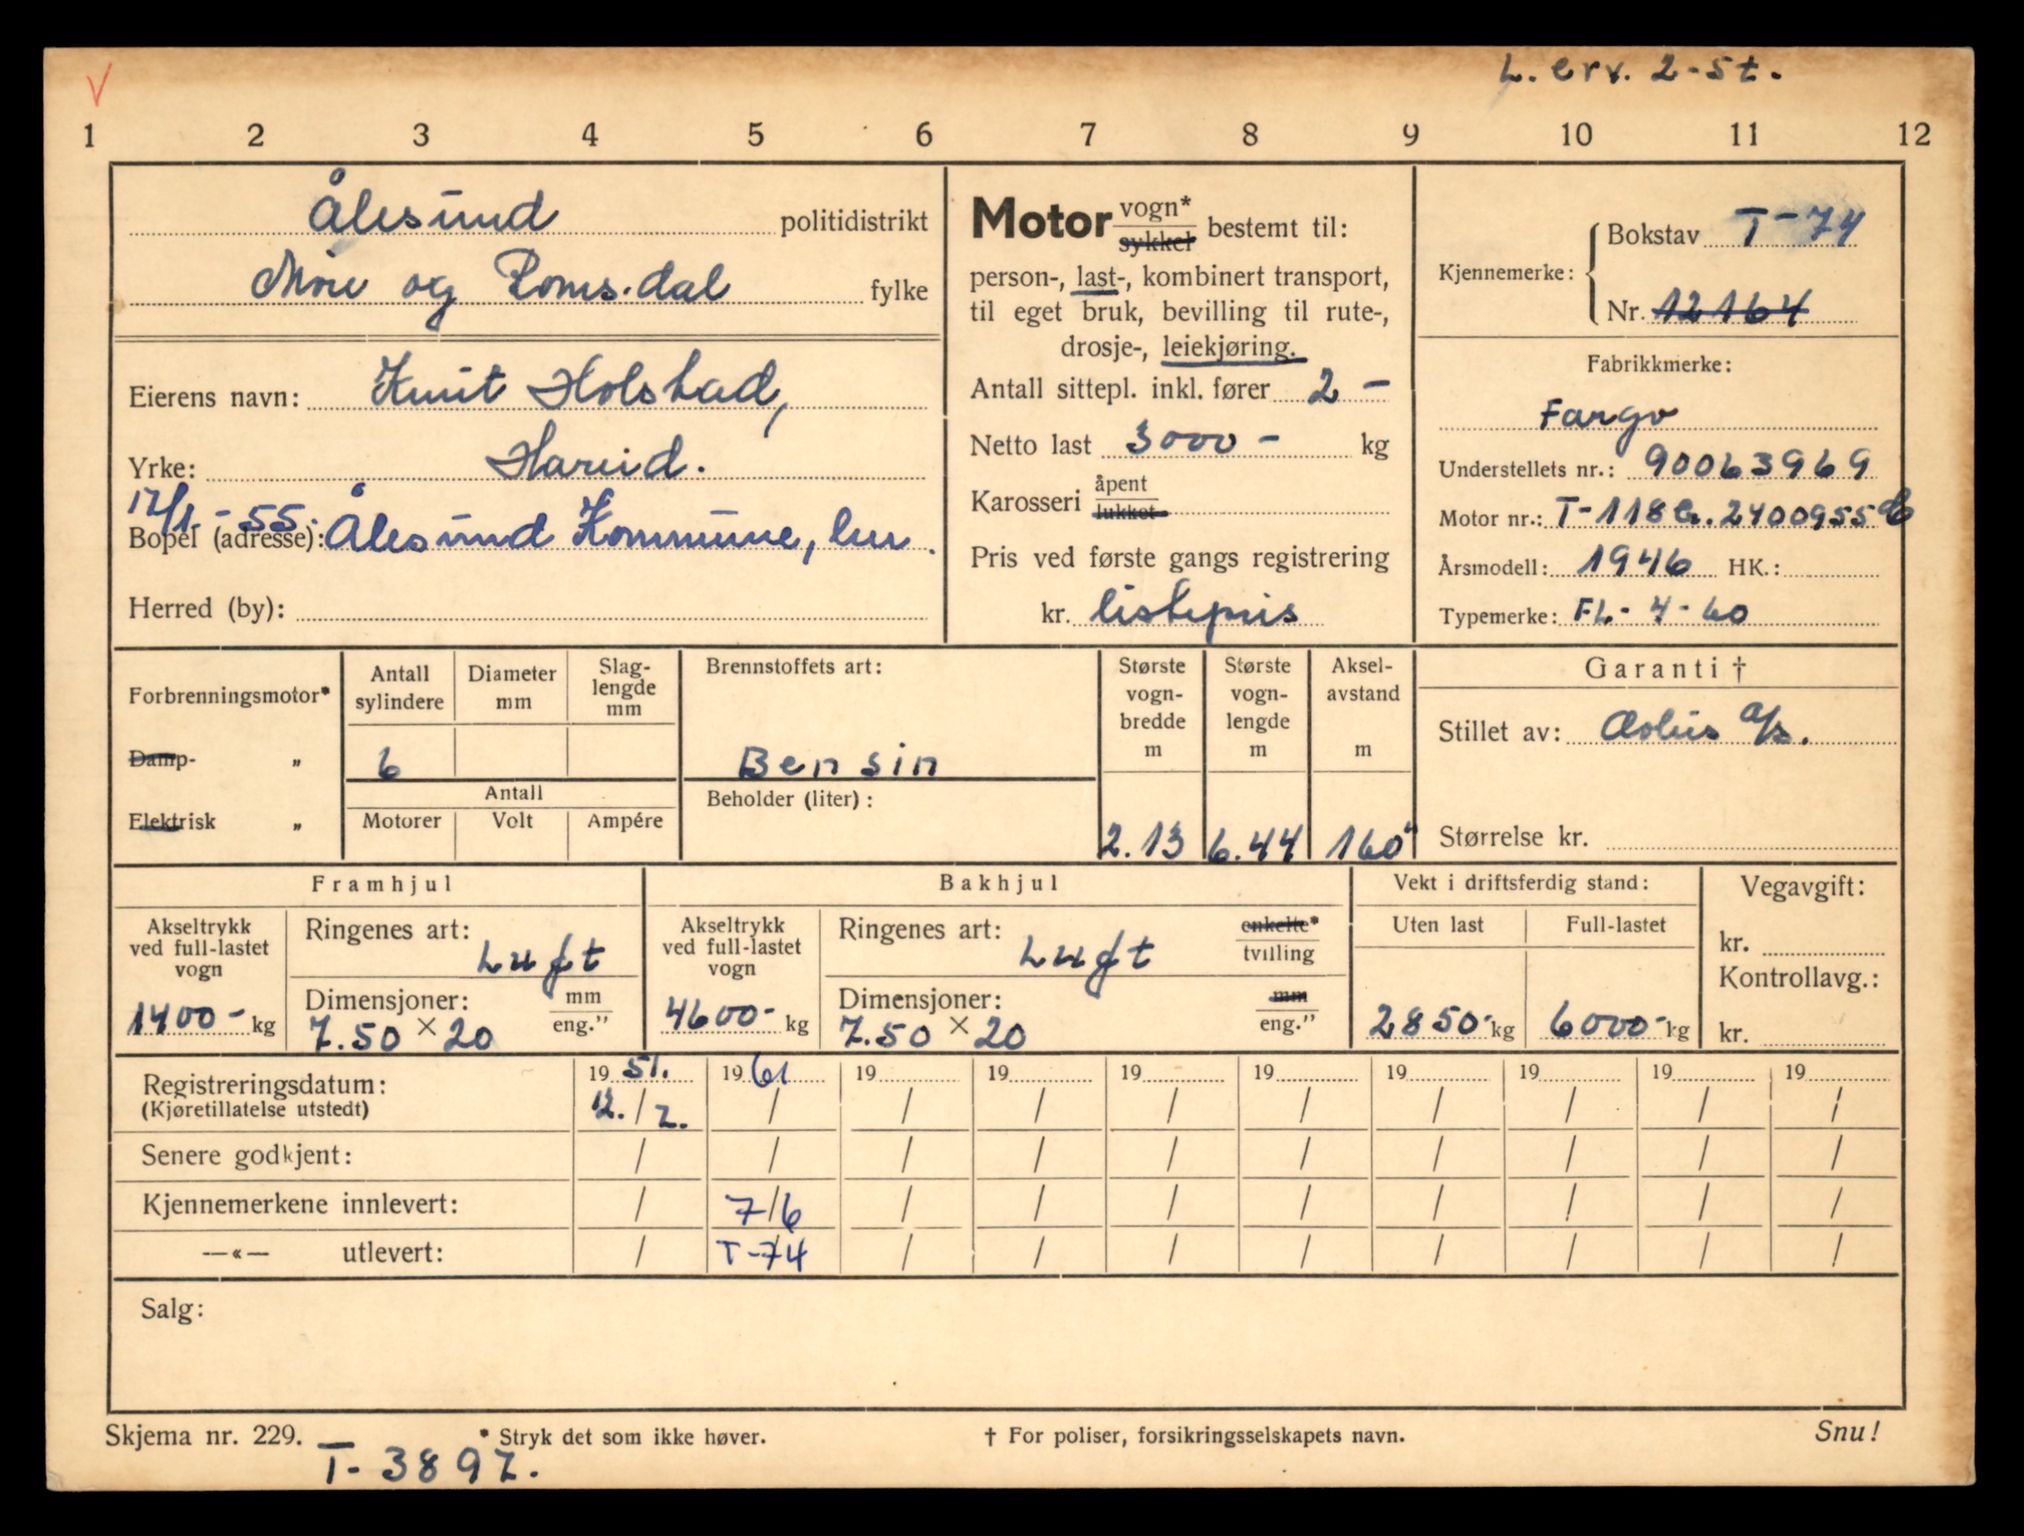 L. erv. 2-st.
1 2 3 4 5 6 7 8 9 10 11 12
Ålesund politidistrikt
Møre og Romsdal fylke
Eierens navn: Knut Holstad,
Yrke: Hareid.
12/1-55.
Bopel (adresse): Ålesund Kommune, her.
Herred (by):
Motor vogn* sykkel bestemt til:
person-, last-, kombinert transport,
til eget bruk, bevilling til rute-,
drosje-, leiekjøring.
Antall sittepl. inkl. fører 2 -
Netto last 3000 - kg
Karosseri åpent lukket
Pris ved første gangs registrering
kr. listepris
Kjennemerke: Bokstav T-74
Nr. 12164
Fabrikkmerke:
Fargo
Understellets nr.: 90063969
Motor nr.: T-118 2400955
Årsmodell: 1946 HK.:
Typemerke: FL-4-60
Forbrenningsmotor*
Damp- „
Elektrisk „
Antall sylindere
Diameter mm
Slaglengde mm
6
Antall
Motorer Volt Ampére
Brennstoffets art:
Bensin
Beholder (liter):
Største vogn-bredde m
2.13
Største vogn-lengde m
6.44
Aksel-avstand m
160"
Garanti †
Stillet av: Æolus A/S.
Størrelse kr.
Framhjul
Akseltrykk ved full-lastet vogn
1400- kg
Ringenes art: Luft
Dimensjoner: mm eng.”
7.50 × 20
Bakhjul
Akseltrykk ved full-lastet vogn
4600- kg
Ringenes art: Luft enkelte* tvilling
Dimensjoner: mm eng.”
7.50 × 20
Vekt i driftsferdig stand:
Uten last Full-lastet
2850- kg 6000- kg
Vegavgift:
kr.
Kontrollavg.:
kr.
Registreringsdatum: 1951. 1961 19 19 19 19 19 19 19 19
(Kjøretillatelse utstedt) 12./2. / / / / / / / / /
Senere godkjent: / / / / / / / / / /
Kjennemerkene innlevert: / 7/6 / / / / / / / /
—«— utlevert: / T-74 / / / / / / / /
Salg:
Skjema nr. 229. * Stryk det som ikke høver. † For poliser, forsikringsselskapets navn. Snu!
T-3897.